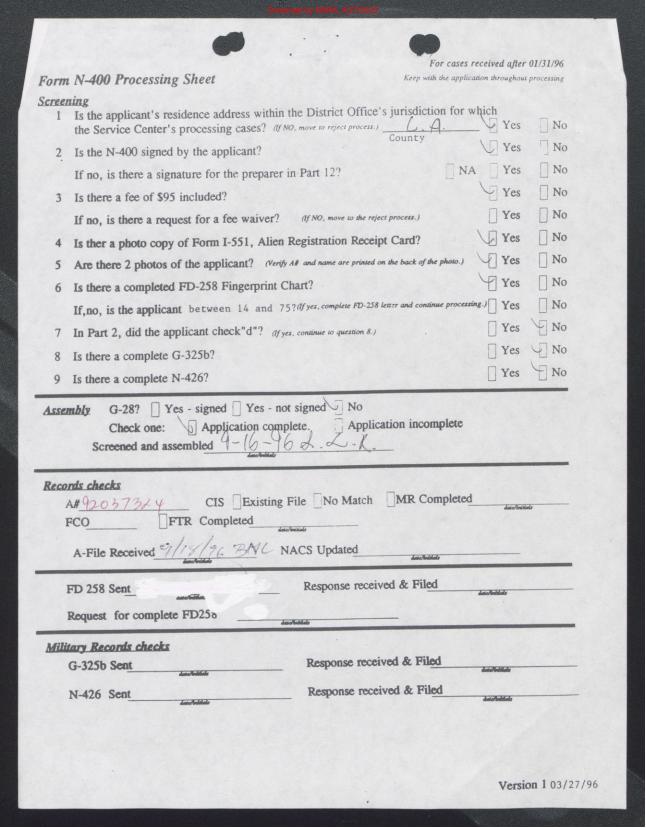 For cases received after 01/31/96
Form N-400 Processing Sheet
Keep with the application throughout processing
Screening
1 Is the applicant's residence address within the District Office's jurisdiction for which
the Service Center's processing cases? (If NO, move to reject process.) L.A. Yes No
County
2 Is the N-400 signed by the applicant? Yes No
If no, is there a signature for the preparer in Part 12? NA Yes No
3 Is there a fee of $95 included? Yes No
If no, is there a request for a fee waiver? (If NO, move to the reject process.) Yes No
4 Is ther a photo copy of Form I-551, Alien Registration Receipt Card? Yes No
5 Are there 2 photos of the applicant? (Verify A# and name are printed on the back of the photo.) Yes No
6 Is there a completed FD-258 Fingerprint Chart? Yes No
If,no, is the applicant between 14 and 75?(If yes, complete FD-258 letter and continue processing.) Yes No
7 In Part 2, did the applicant check"d"? (If yes, continue to question 8.) Yes No
8 Is there a complete G-325b? Yes No
9 Is there a complete N-426? Yes No
Assembly G-28? Yes - signed Yes - not signed No
Check one: Application complete. Application incomplete
Screened and assembled 9-16-96 L.L.R.
date/initials
Records checks
A# CIS Existing File No Match MR Completed
date/initials
FCO FTR Completed
date/initials
A-File Received 9/18/96 NACS Updated
date/initials date/initials
FD 258 Sent Response received & Filed
date/initials date/initials
Request for complete FD258
date/initials
Military Records checks
G-325b Sent Response received & Filed
date/initials date/initials
N-426 Sent Response received & Filed
date/initials date/initials
Version 1 03/27/96